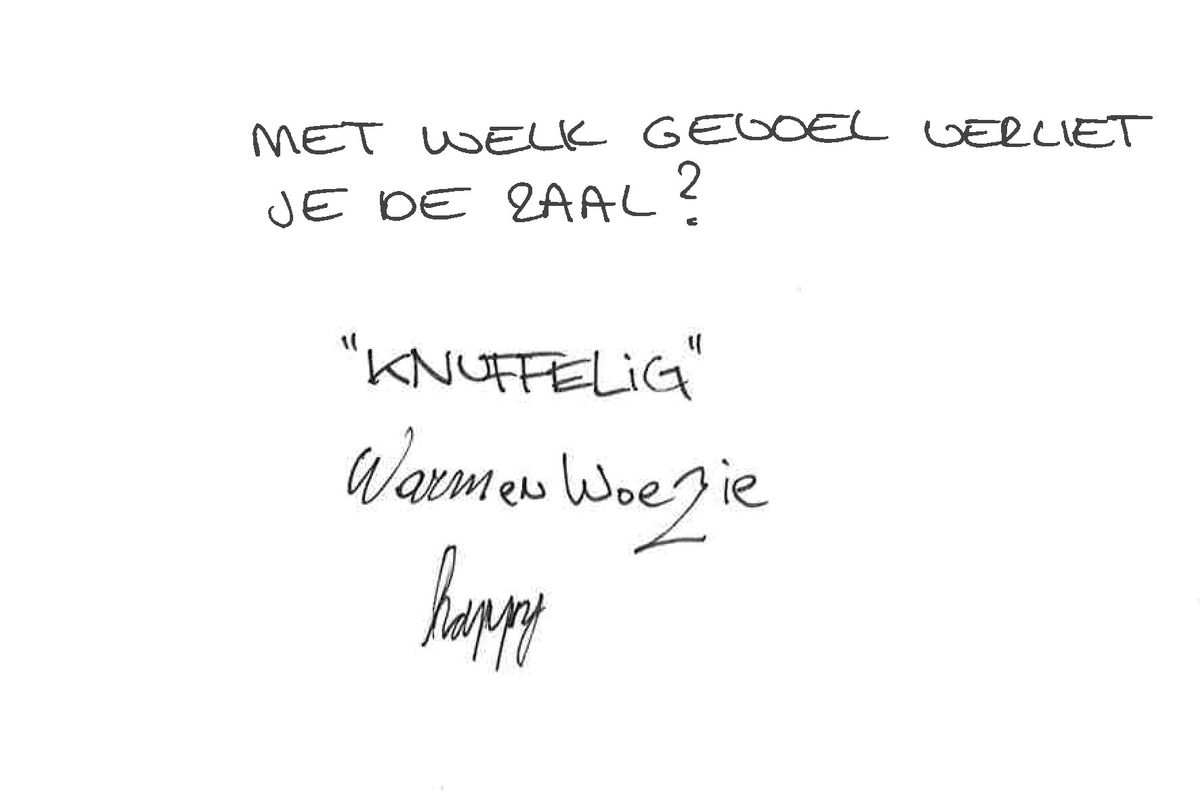 MET WELK GEVOEL VERLIET
JE DE ZAAL?
"KNUFFELiG"
Warm en Woezie
happy